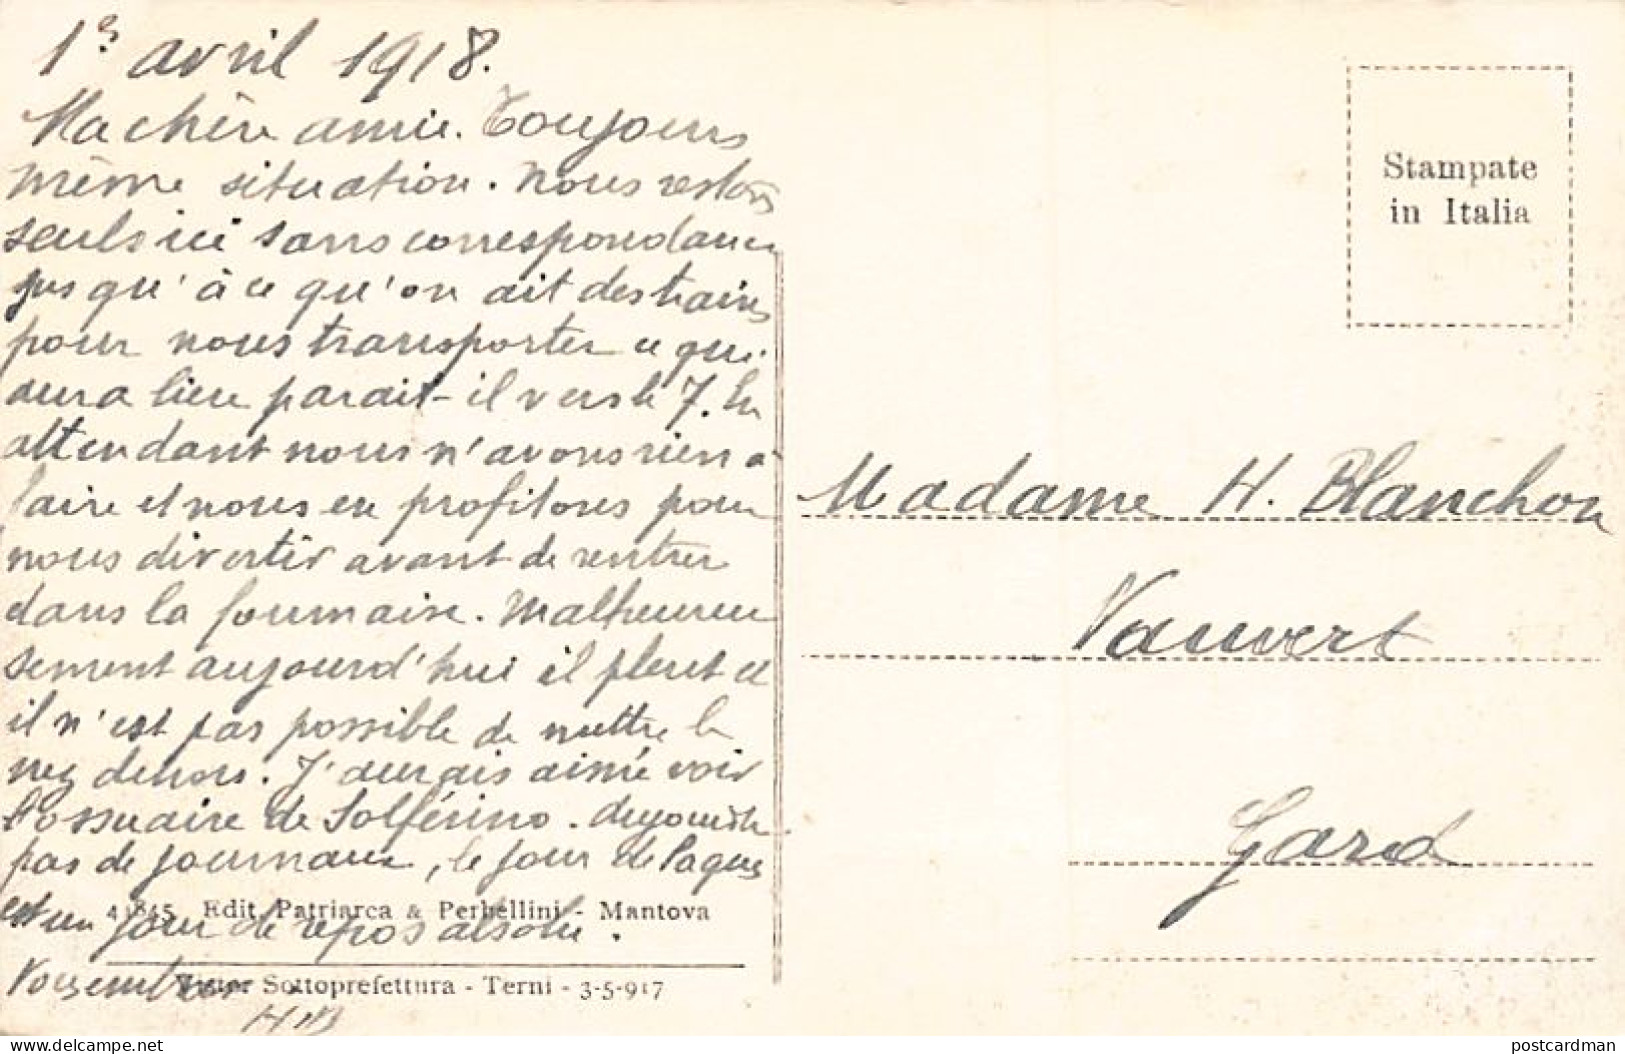 1er avril 1918.
Ma chère amie. Toujours
même situation. Nous restons
seuls ici sans correspondance
jusqu'à ce qu'on ait des trains
pour nous transporter ce qui
aura lieu parait-il vers le 7. En
attendant nous n'avons rien à
faire et nous en profitons pour
nous divertir avant de rentrer
dans la fournaise. Malheureu
sement aujourd'hui il pleut et
il n'est pas possible de mettre le
nez dehors. J'aurais aimé voir
l'ossuaire de Solférino.
pas de journaux, le jour de Paques
est un jour de repos absolu.
41845 Edit. Patriarca & Perbellini - Mantova
Visto: Sottoprefettura - Terni - 3-5-917
HB
Stampate
in Italia
Madame H. Blanchon
Vauvert
Gard
delcampe.net
postcardman